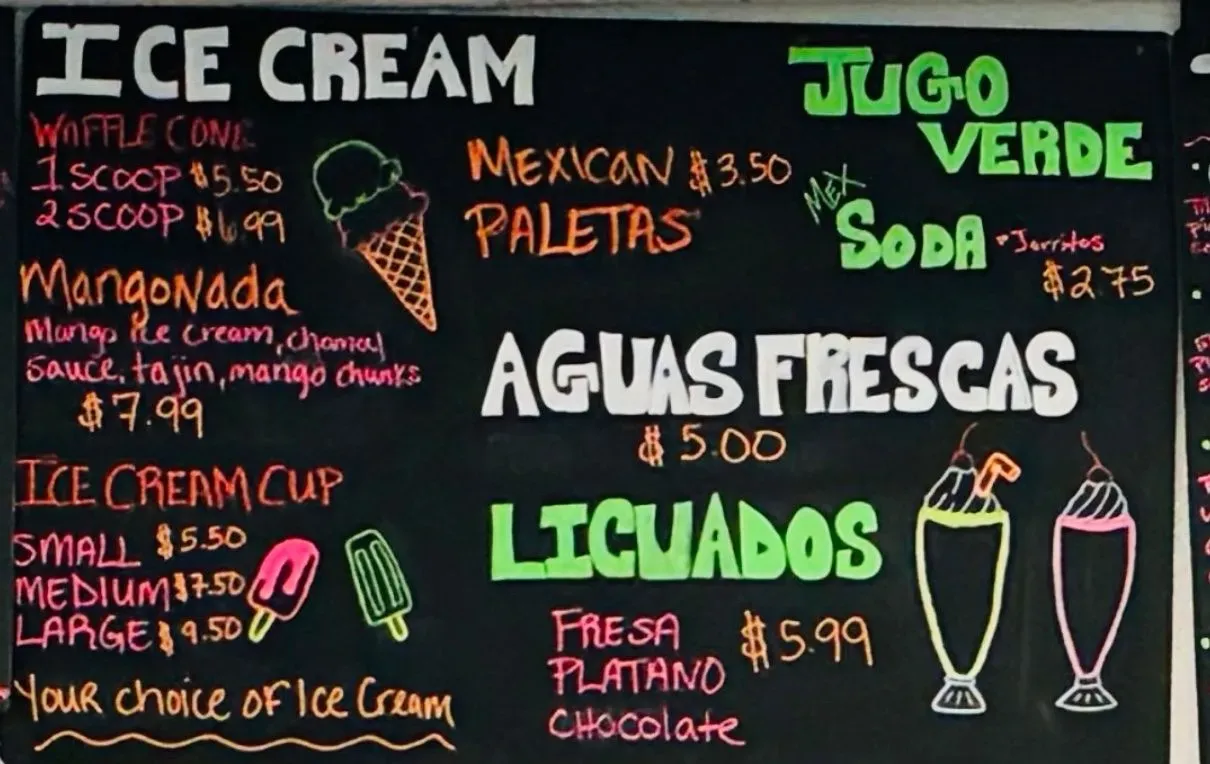 ICE CREAM
WAFFLE CONE
1 SCOOP $5.50
2 SCOOP $6.99
MangoNada
Mango Ice Cream, chamoy
sauce, tajin, mango chunks
$7.99
ICE CREAM CUP
SMALL $5.50
MEDIUM $7.50
LARGE $9.50
Your choice of Ice Cream
MEXICAN $3.50
PALETAS
JUGO
VERDE
MEX
SODA • Jarritos
$2.75
AGUAS FRESCAS
$5.00
LICUADOS
FRESA $5.99
PLATANO
CHOColate